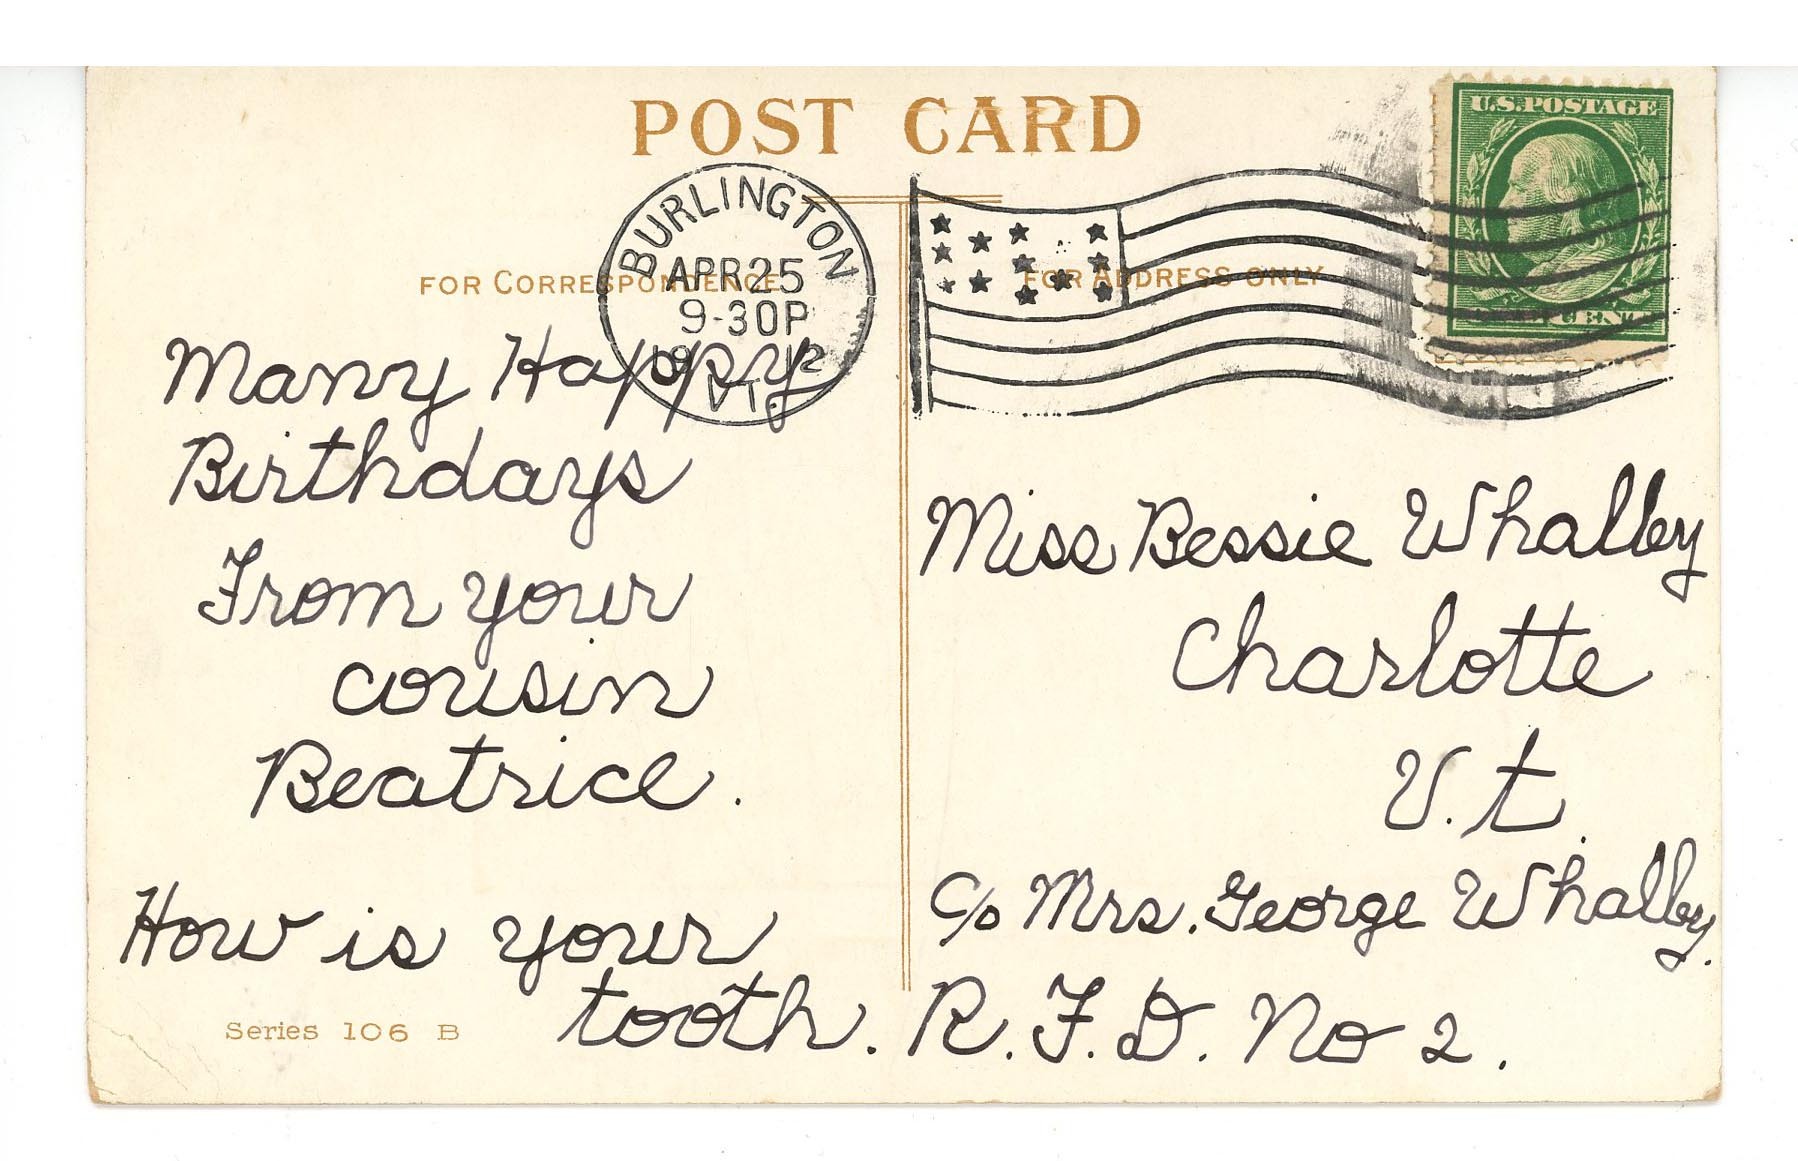 POST CARD
U.S. POSTAGE
BURLINGTON
APR 25
9-30P
1912
VT.
FOR CORRESPONDENCE
FOR ADDRESS ONLY
Many Happy
Birthdays
From your
cousin
Beatrice.
How is your
tooth.
Series 106 B
Miss Bessie Whalley
Charlotte
V.t.
c/o Mrs. George Whalley.
R.F.D. No 2.